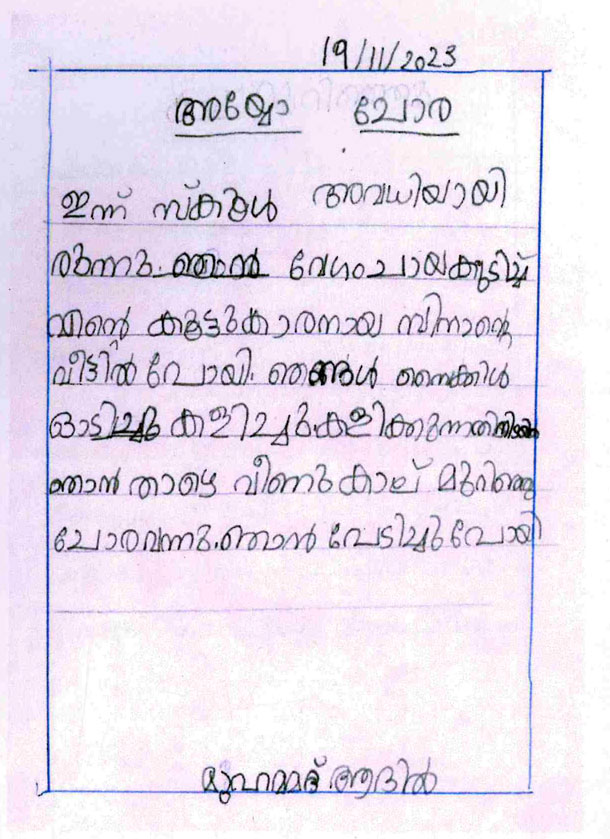 19/11/2023
അയ്യോ ചോര
ഇന്ന് സ്കൂൾ അവധിയായി
രുന്നു. ഞാൻ വേഗം ചായകുടിച്ച്
എന്റെ കൂട്ടുകാരനായ സിനാന്റെ
വീട്ടിൽ പോയി. ഞങ്ങൾ സൈക്കിൾ
ഓടിച്ചു കളിച്ചു. കളിക്കുന്നതിനിടക്ക
ഞാൻ താഴെ വീണു കാല് മുറിഞ്ഞു
ചോരവന്നു. ഞാൻ പേടിച്ചുപോയി
മുഹമ്മദ് ആദിൽ